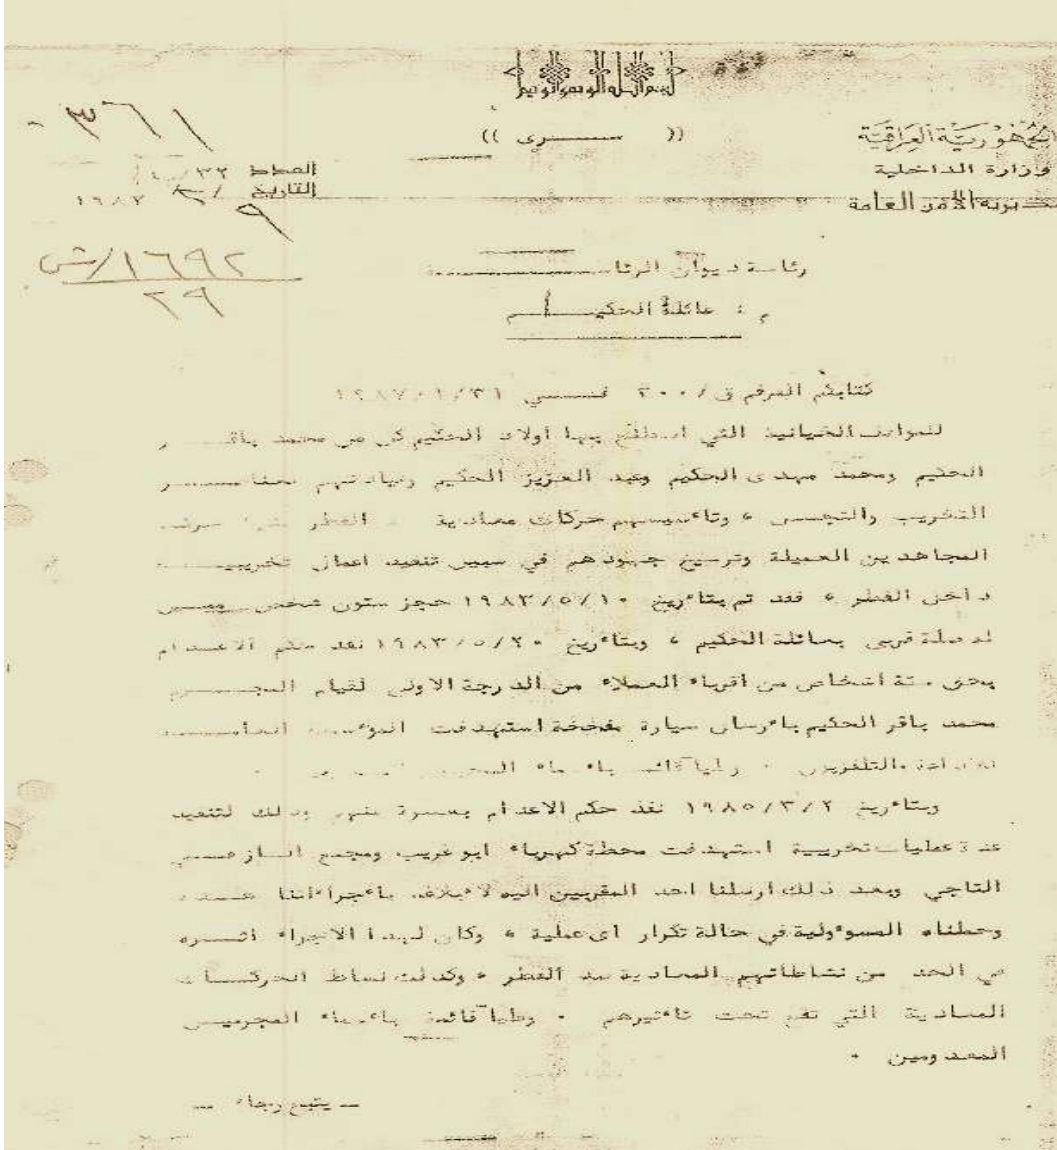 بسم الله الرحمن الرحيم
٣٦١
(( ســــري ))
الجمهورية العراقية
وزارة الداخلية
مديرية الامن العامة
العدد
التاريخ ٩ / ٣ / ١٩٨٧
١٦٩٢/ش
٢٩
رئاسة ديوان الرئاســـــــة
م : عائلة الحكيـــــم
كتابكم المرقم ق / ٢٠٠ فـــي ٣١/ ١/ ١٩٨٧
للمواقف الخيانية التي اضطلع بها اولاد الحكيم كل من محمد باقــــر
الحكيم ومحمد مهدى الحكيم وعبد العزيز الحكيم وقيادتهم
التخريب والتجسس ، وتأسيسهم حركات معادية القطر
المجاهدين العميلة وترسيخ جهودهم في سبيل تنفيذ اعمال تخريبيـــــة
داخل القطر ، فقد تم بتأريخ ١٠/ ٥/ ١٩٨٣ حجز ستون شخص
له صلة قربى بعائلة الحكيم ، وبتأريخ ٢٠/ ٥/ ١٩٨٣ نفذ حكم الاعـــدام
بحق ستة اشخاص من اقرباء العملاء من الدرجة الاولى لقيام المجـــــرم
محمد باقر الحكيم بأرسال سيارة مفخخة استهدفت المؤسسة العامـــــة
للاذاعة والتلفزيون . وطيا قائمة بأسماء
وبتأريخ ٢/ ٣/ ١٩٨٥ نفذ حكم الاعدام بعشرة منهم وذلك لتنفيذ
عدة عمليات تخريبية استهدفت محطة كهرباء ابو غريب ومجمع الغاز فـــي
التاجي وبعد ذلك ارسلنا احد المقربين اليه لأبلاغه بأجراءاتنا
وحملناه المسؤولية في حالة تكرار اى عملية ، وكان لهذا الاجراء اثـــره
في الحد من نشاطاتهم المعادية ضد القطر ، وكذلك نشاط الحركـــات
المعادية التي تقع تحت تأثيرهم . وطيا قائمة بأسماء المجرميـــن
المعدومين .
ــ يتبع رجاء ــ